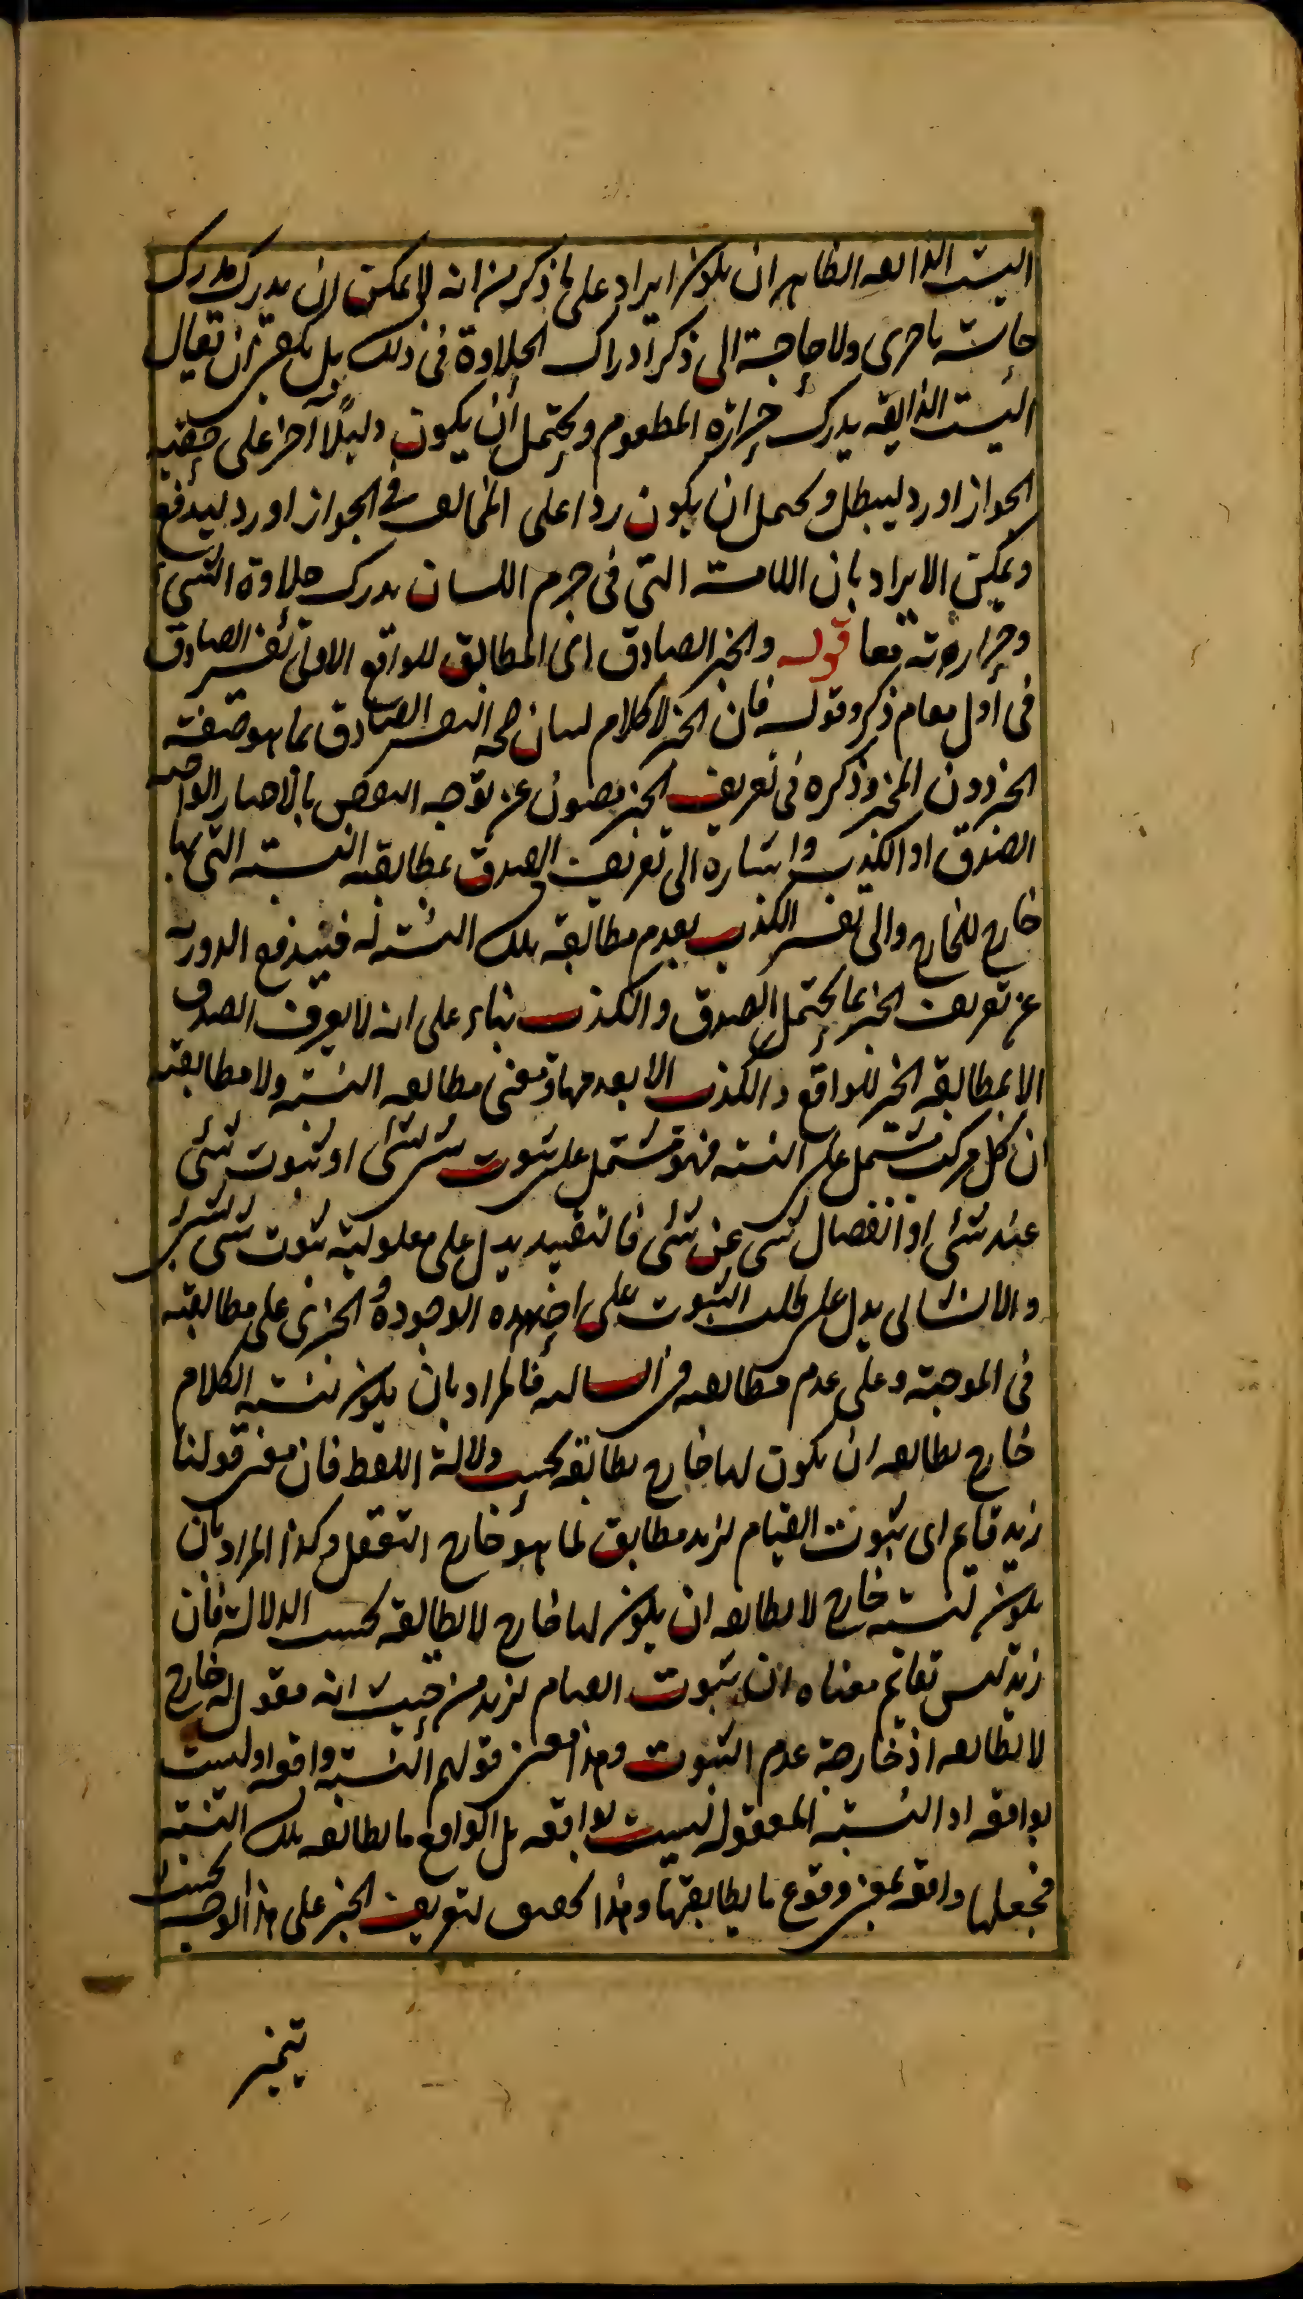 اليست الذائقه الظاهر ان يكون ايراد على ما ذكر من انه لا يمكن ان يدرك مدرك
حاسة باخرى ولا حاجة الى ذكر ادراك الحلاوة فى ذلك بل يكفى ان يقال
اليست الذايقه يدرك حرارة المطعوم ويحتمل ان يكون دليلا آخر على حقية
الجواز اورد ليبطل ويحتمل ان يكون ردا على المخالف فى الجواز اورد ليدفع
ويمكن الايراد بان اللامسة التى فى جرم اللسان يدرك حلاوة الشىء
وحرارته معا قوله والخبر الصادق اى المطابق للواقع الاولى تفسير الصادق
فى اول مقام ذكر وقوله فان الخبر كلام لبيان صحه التفسير الصادق بما هو صفة
الخبر دون المخبر وذكره فى تعريف الخبر مصون عن توجه النقض بالاخبار الواجبه
الصدق او الكذب واشارة الى تعريف الصدق بمطابقه النسبة التى لها
خارج للخارج والى تفسير الكذب بعدم مطابقه تلك النسبة له فيندفع الدور
عن تعريف الخبر بما يحتمل الصدق والكذب بناء على انه لا يعرف الصدق
الا بمطابقة الخبر للواقع والكذب الا بعدمها ومعنى مطابقه النسبة ولا مطابقته
ان كل مركب مشتمل على النسبه فهو مشتمل على ثبوت شىء لشىء او ثبوت شىء
عند شىء او انفصال شىء عن شىء فالتقييد يدل على معلومية ثبوت شىء لشىء
والانشائى يدل على طلب الثبوت على احد هذه الوجوه والخبرى على مطابقته
فى الموجبة وعلى عدم مطابقته فى السالبه فالمراد بان يكون لنسبة الكلام
خارج يطابقه ان يكون لها خارج يطابقه بحسب دلالة اللفظ فان معنى قولنا
زيد قايم اى ثبوت القيام لزيد مطابق لما هو خارج التعقل وكذا المراد بان
يكون لنسبته خارج لا يطابقه ان يكون لها خارج لا يطابقه بحسب الدلالة فان
زيد ليس بقائم معناه ان ثبوت القيام لزيد من حيث انه معقول له خارج
لا يطابقه اذ خارجه عدم الثبوت وهذا معنى قولهم النسبة واقعه او ليست
بواقعه اذ النسبة المعقوله ليست بواقعه بل الواقع ما يطابقه تلك النسبة
فجعلها واقعه بمعنى وقوع ما يطابقها وهذا تحقيق لتعريف الخبر على هذا الوجه بحيث
يتميز